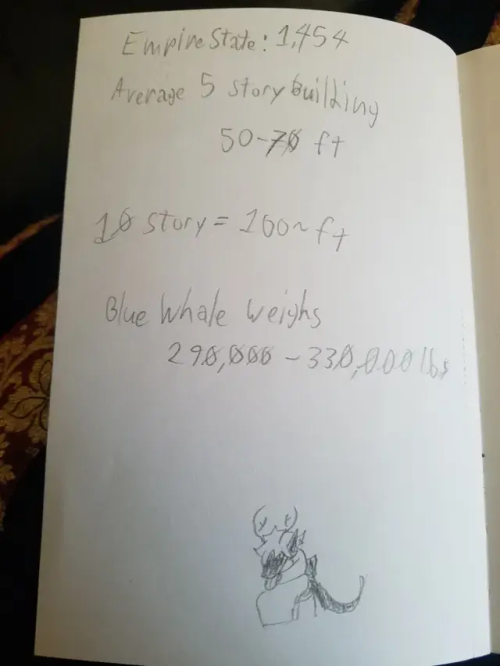 Empire State: 1,454
Average 5 story building
50-70 ft
10 story = 100~ ft
Blue Whale Weighs
290,000 - 330,000 lbs